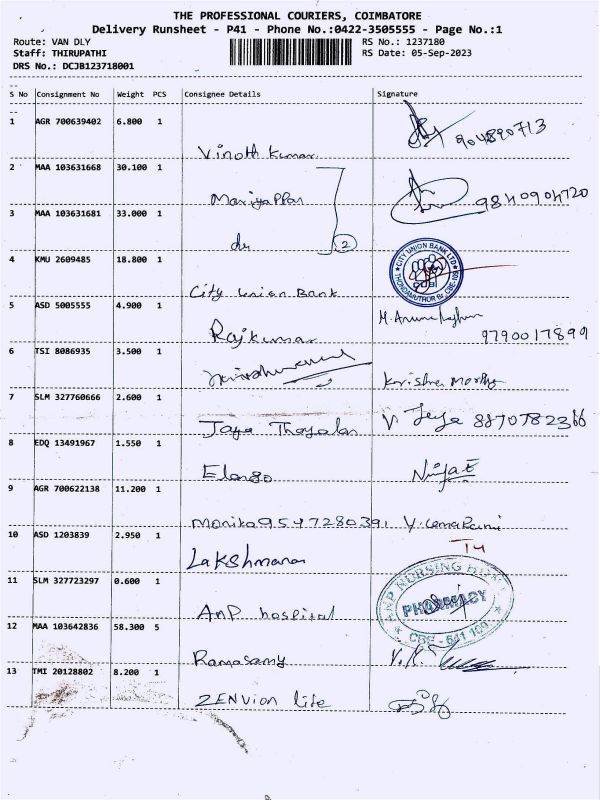 THE PROFESSIONAL COURIERS, COIMBATORE
Delivery Runsheet - P41 - Phone No.:0422-3505555 - Page No.:1
Route: VAN DLY RS No.: 1237180
Staff: THIRUPATHI RS Date: 05-Sep-2023
DRS No.: DCJB123718001
S No Consignment No Weight PCS Consignee Details Signature
1 AGR 700639402 6.800 1
Vinoth Kumar 904890713
2 MAA 103631668 30.100 1
Mariyappan 9840904720
3 MAA 103631681 33.000 1
do 2
4 KMU 2609485 18.800 1
City Union Bank CITY UNION BANK LTD
5 ASD 5005555 4.900 1
Rajkumar 9790017899
6 TSI 8086935 3.500 1
7 SLM 327760666 2.600 1
Jaya
8 EDQ 13491967 1.550 1
Elango
9 AGR 700622138 11.200 1
Monika 9547280391
10 ASD 1203839 2.950 1
Lakshmanan
11 SLM 327723297 0.600 1
ANP hospital ANP NURSING PHARMACY CBE - 641 109
12 MAA 103642836 58.300 5
Ramasamy
13 TMI 20128802 8.200 1
ZENVion life